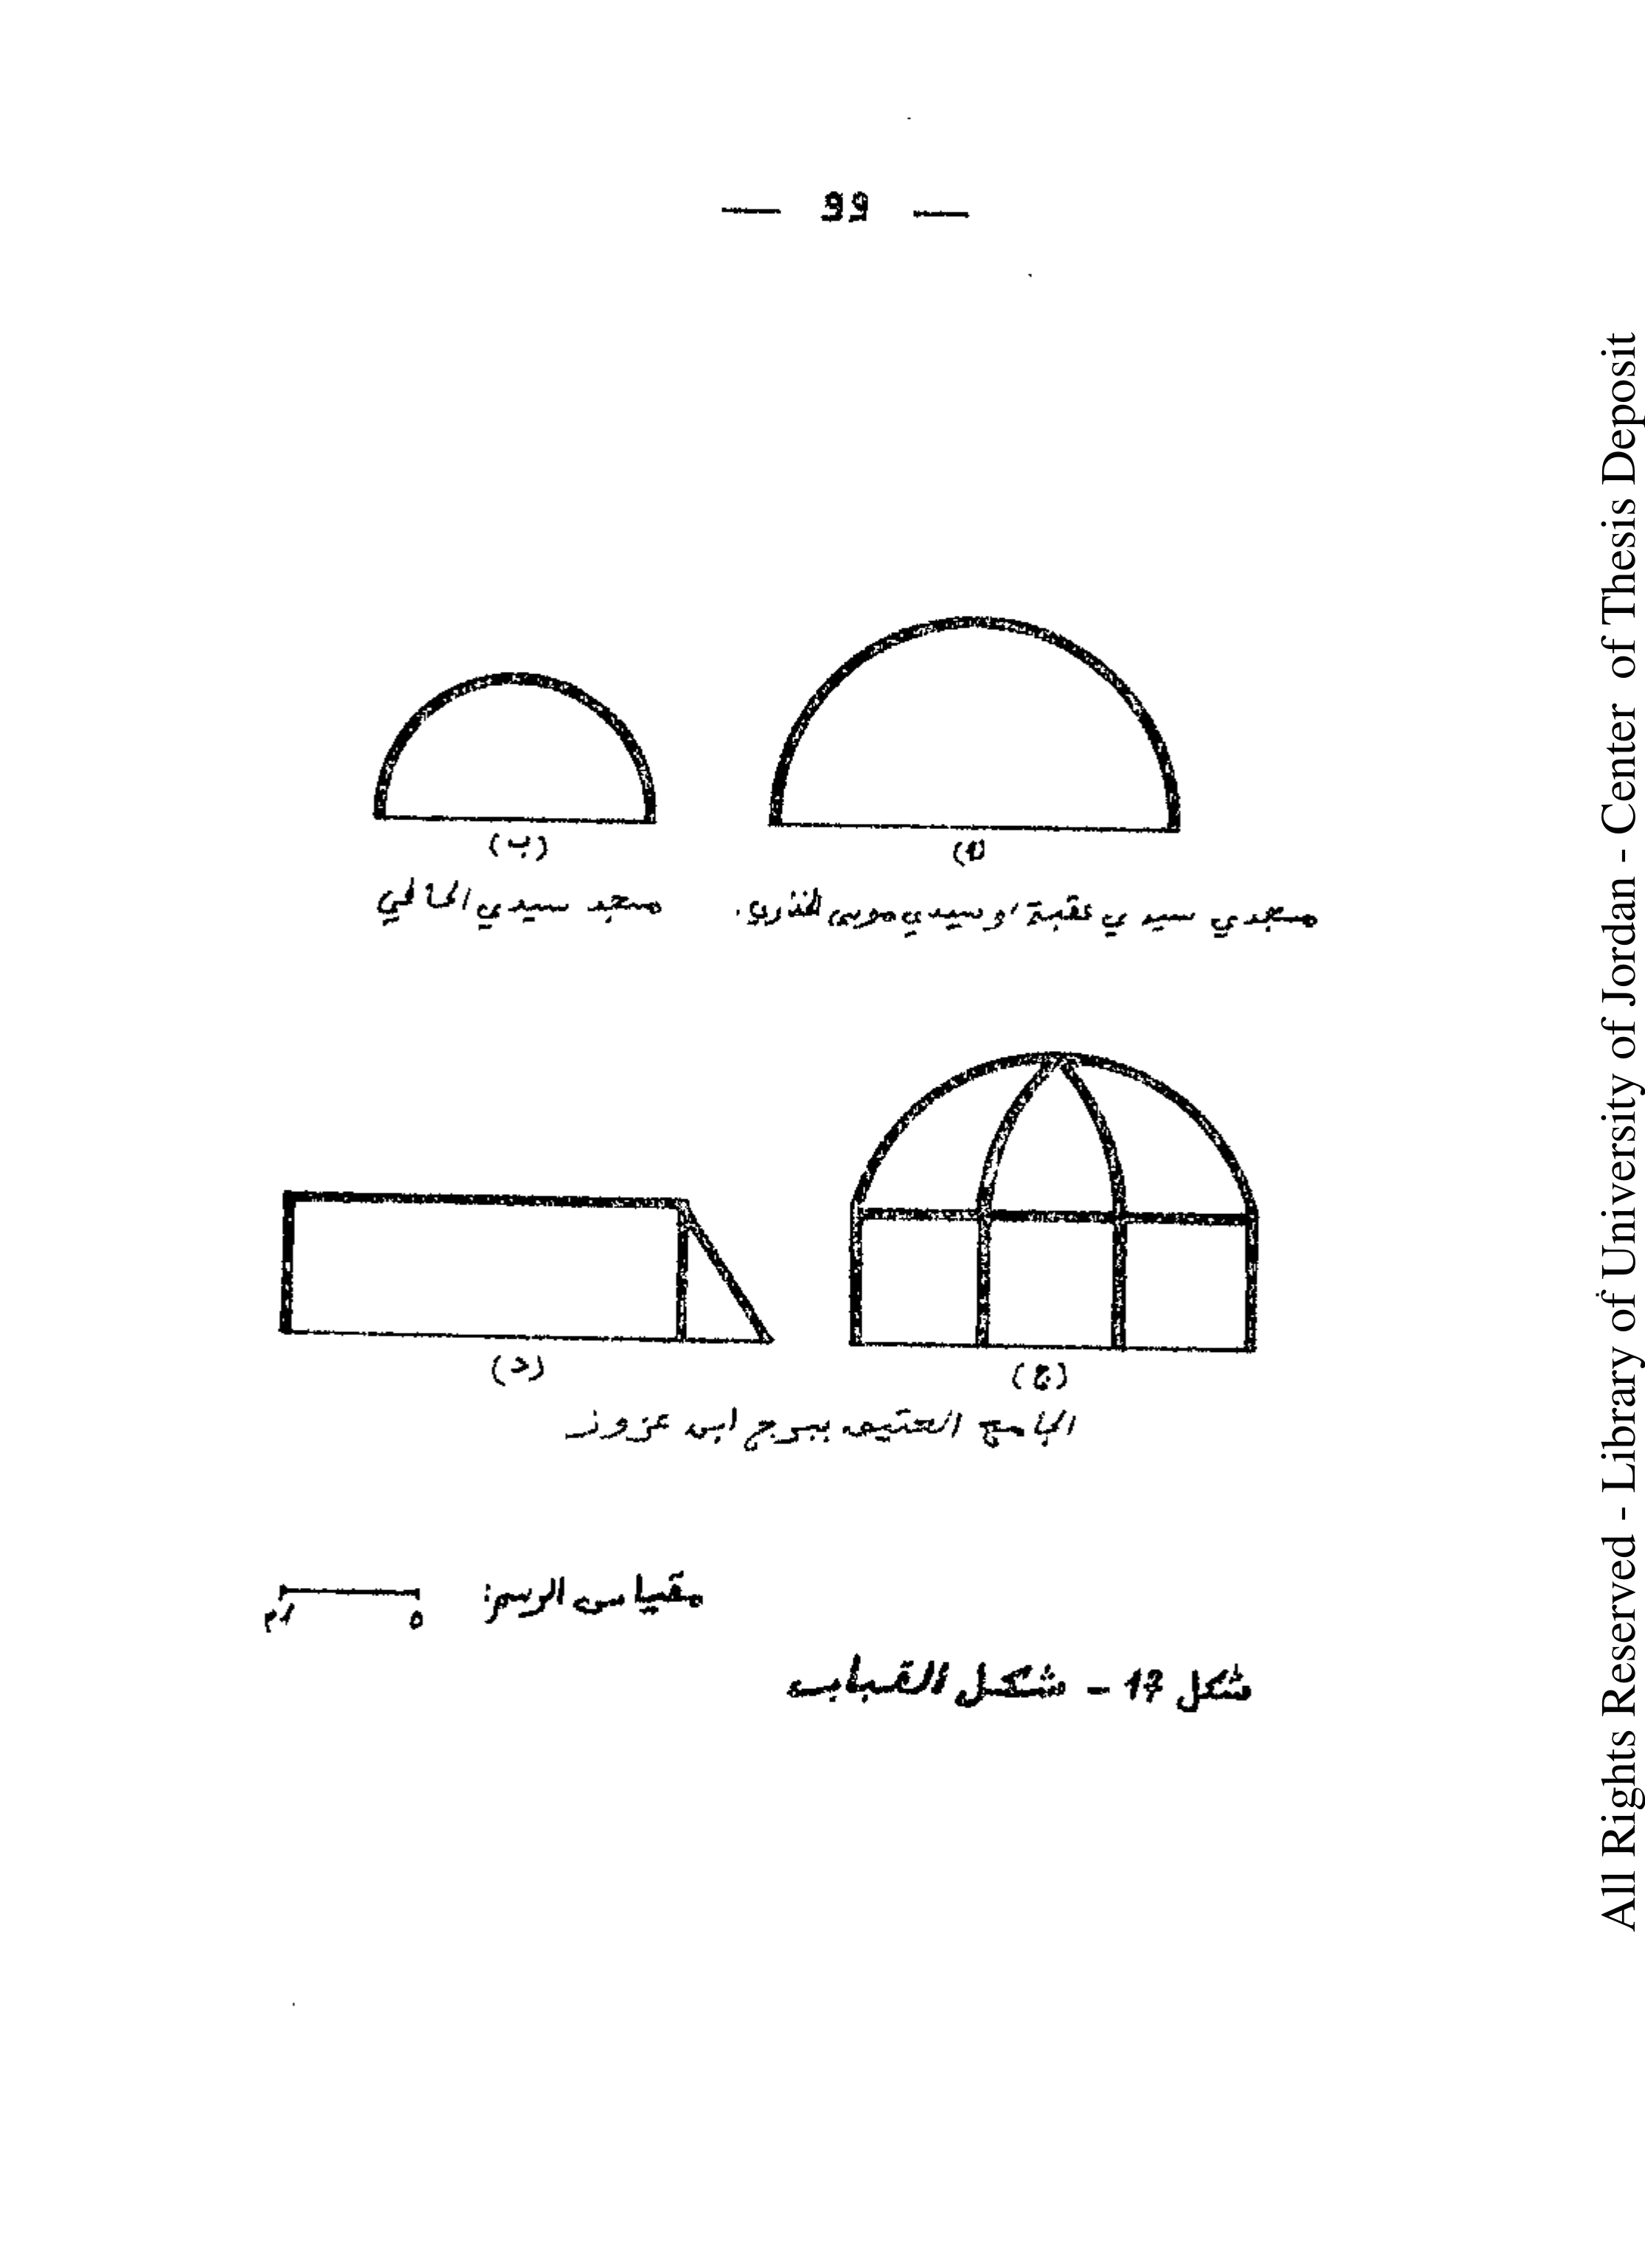 — 99 —
(ب) (أ)
مسجدي سيدي عقبة او سيدي موسى الخذري. مسجد سيدي الحالمي
(د) (ج)
الجامع العتيق ببرج ابن عزوز
مقياس الرسم: 0 1م
شكل 17 - شكل القباب
All Rights Reserved - Library of University of Jordan - Center of Thesis Deposit